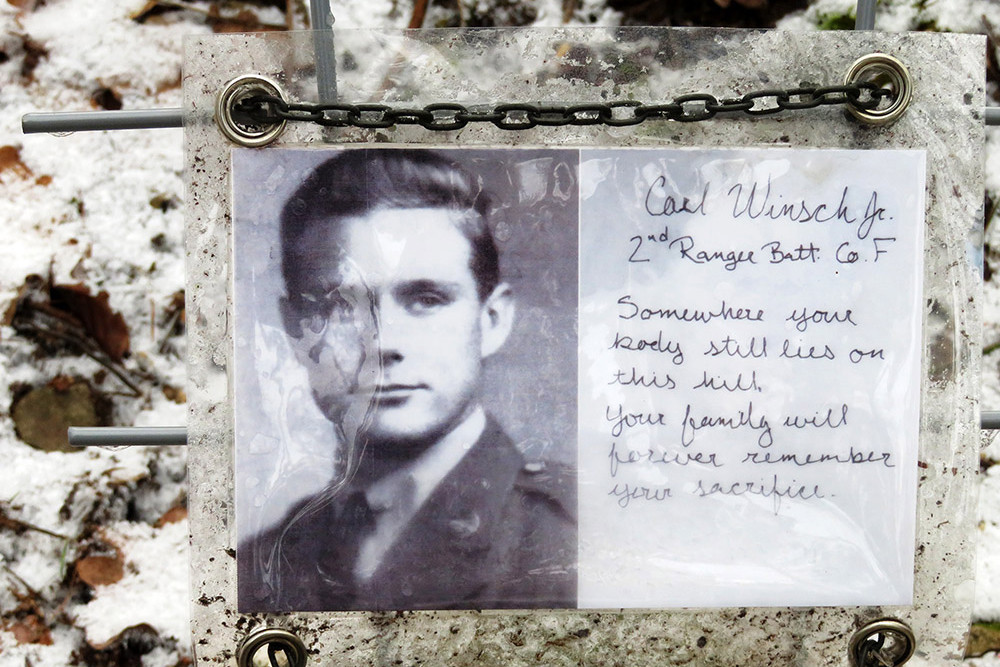 Carl Winsch Jr.
2nd Ranger Batt. Co. F
Somewhere your
body still lies on
this hill.
Your family will
forever remember
your sacrifice.